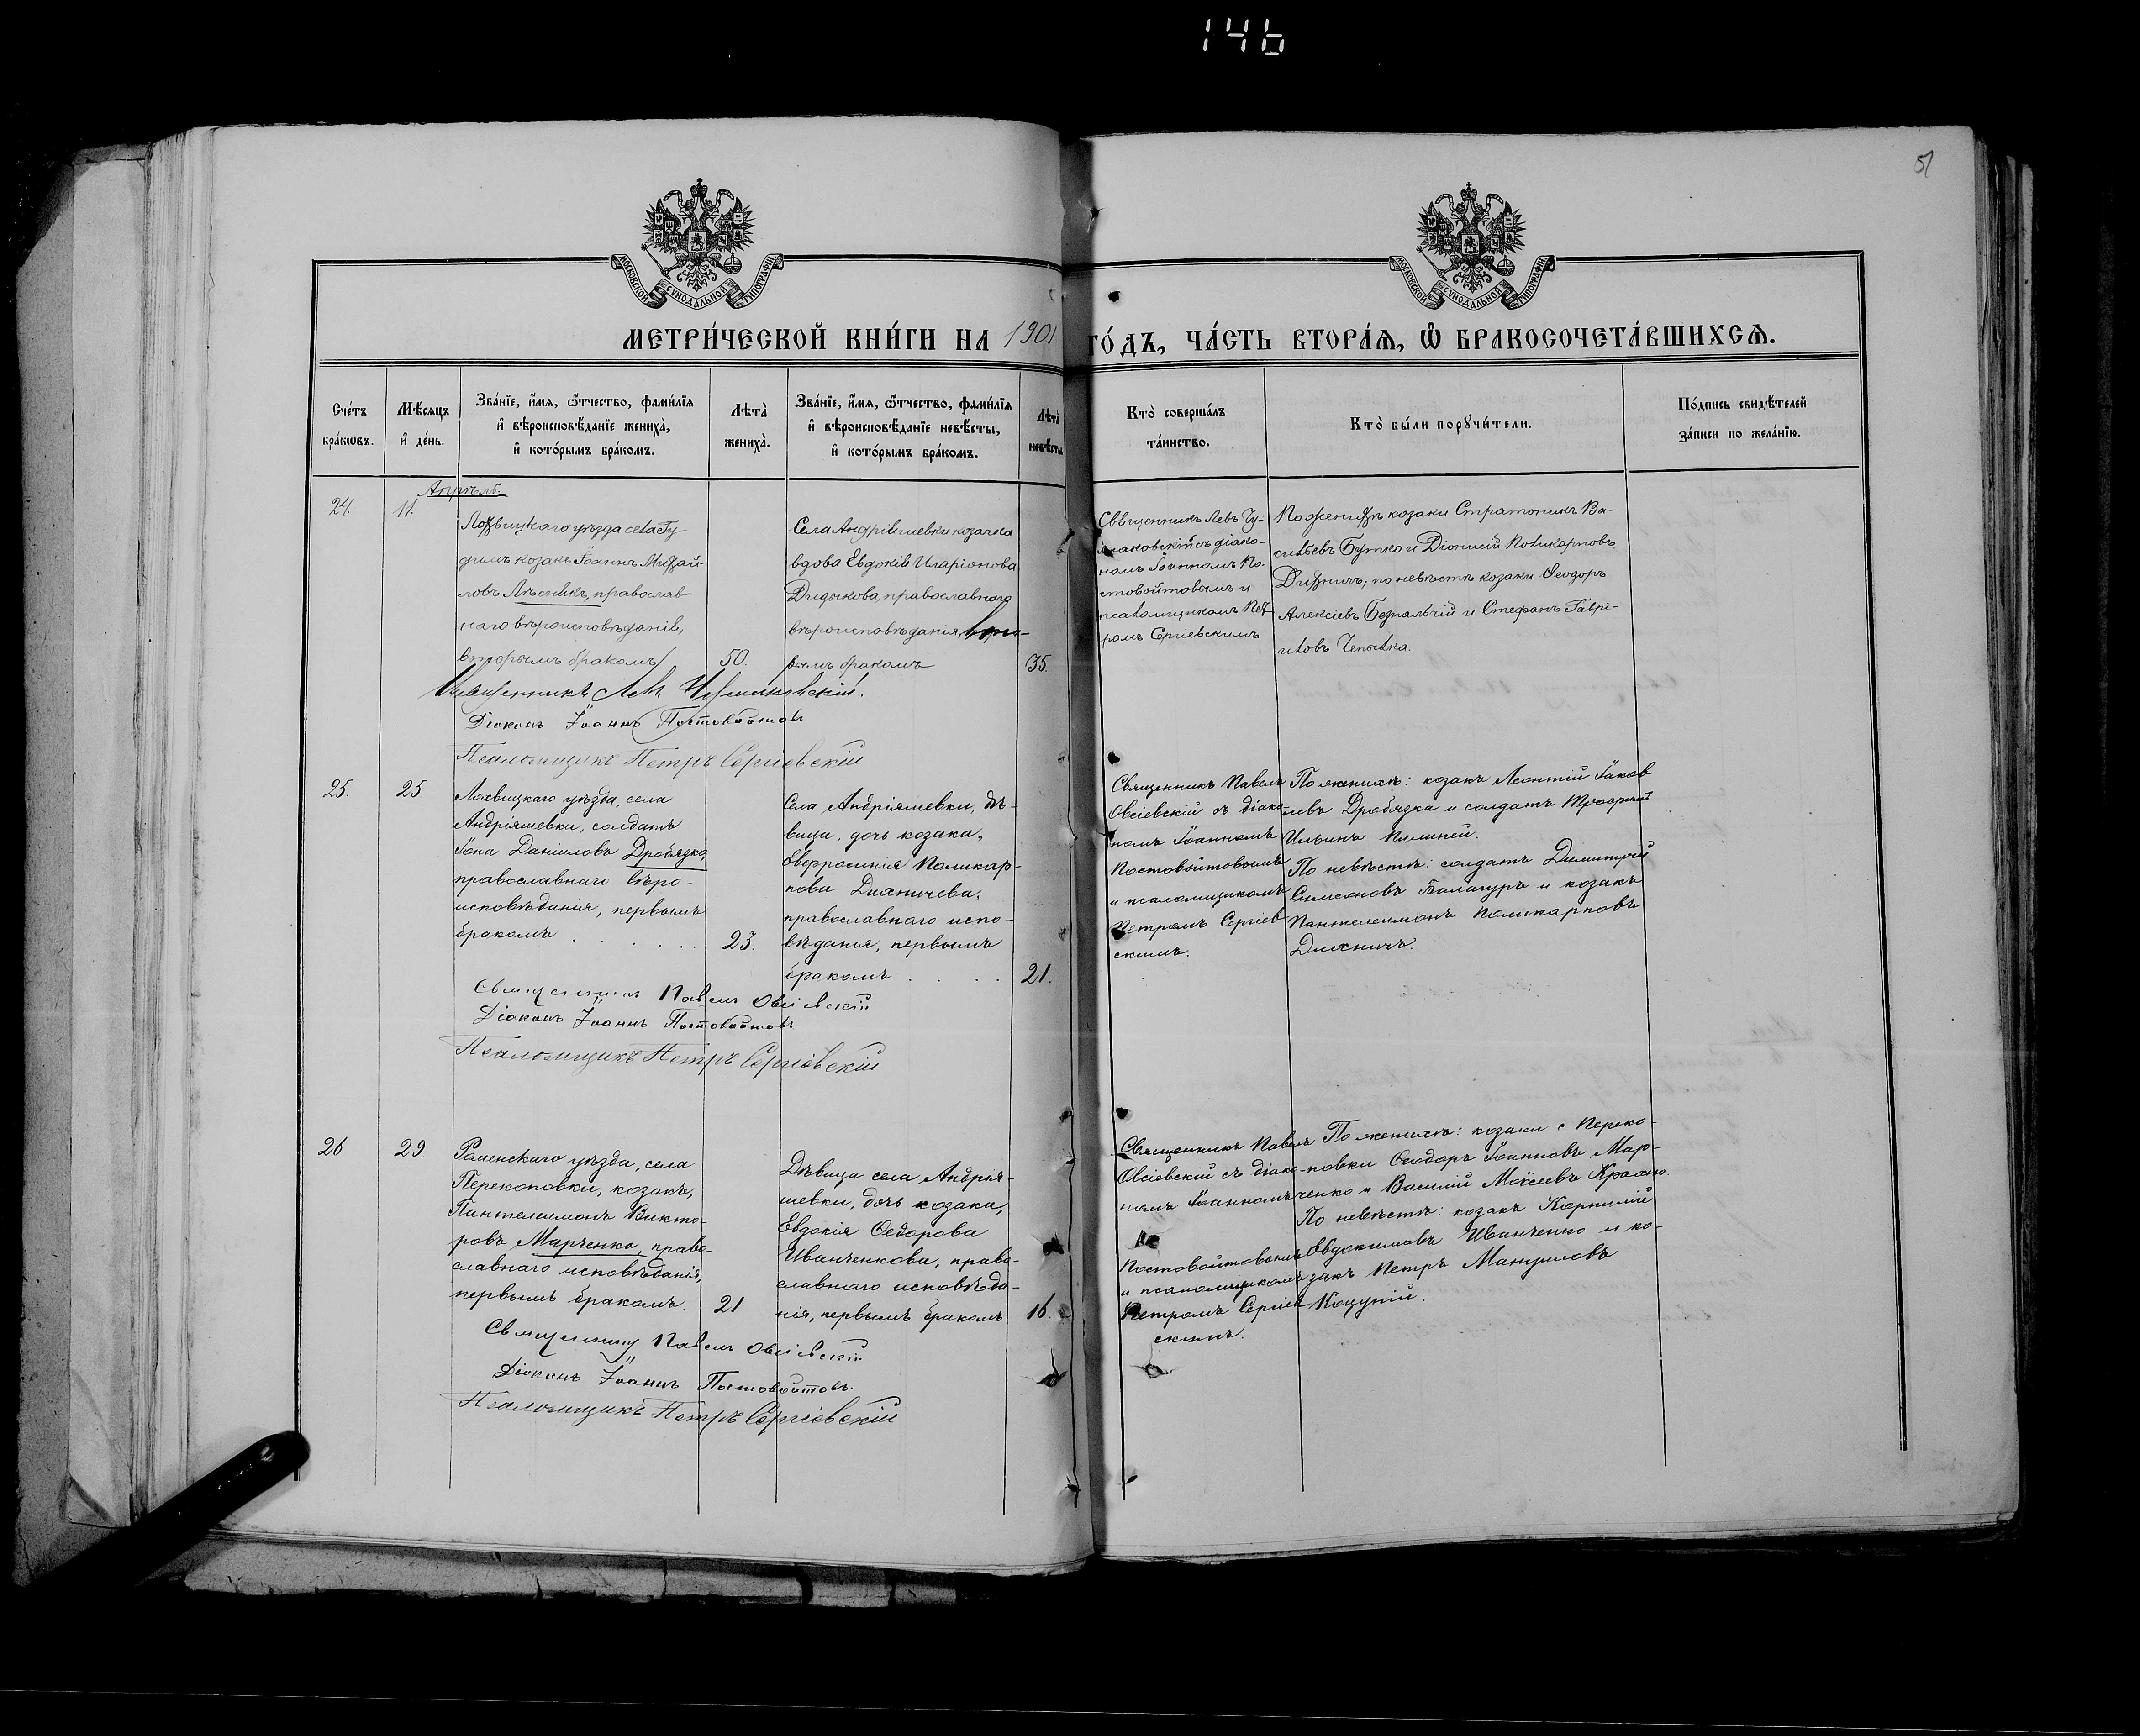 146
51
МОСКОВСКОЙ СѴНОДАЛЬНОЙ ТИПОГРАФІИ
МОСКОВСКОЙ СѴНОДАЛЬНОЙ ТИПОГРАФІИ
МЕТРИ́ЧЕСКОЙ КНИ́ГИ НА 1901 ГО́ДЪ, ЧА́СТЬ ВТОРА́Ѧ, Ѽ БРАКОСОЧЕТА́ВШИХСѦ.
Сче́тъ бра́кѡвъ.
Мѣ́сѧцъ и҆ де́нь.
Зва́нїе, и҆́мѧ, ѻ҆́тчество, фами́лїѧ
и҆ вѣроисповѣ́данїе жениха̀,
и҆ кото́рымъ бра́комъ.
Лѣ́та̀ жениха̀.
Зва́нїе, и҆́мѧ, ѻ҆́тчество, фами́лїѧ
и҆ вѣроисповѣ́данїе невѣ́сты,
и҆ кото́рымъ бра́комъ.
Лѣ́та̀ невѣ́сты
Кто̀ соверша́лъ
та́инство.
Кто̀ бы́ли порꙋчи́тели.
По́дпись свидѣ́телей
за́писи по жела́нїю.
Апрѣль.
24.
11.
Лохвицкаго уѣзда села Гу-
димъ козакъ Іоаннъ Михай-
ловъ Лѣсникъ, православ-
наго вѣроисповѣданія,
вторымъ бракомъ
50.
Села Андріяшевки козачка
вдова Евдокія Иларіонова
Дидыкова, православнаго
вѣроисповѣданія,
вымъ бракомъ
35.
Священникъ Левъ Чу-
маковскій съ діако-
номъ Іоанномъ По-
стовойтовымъ и
псаломщикомъ Пет-
ромъ Сергіевскимъ
По женихѣ козаки Стратоникъ Ва-
сильевъ Бутко и Діонисій Поликарповъ
Дихничъ; по невѣстѣ козаки Ѳеодоръ
Алексіевъ Безпалъчій и Стефанъ Гаврі-
иловъ Чепылка.
Священникъ Левъ Чумаковскій.
Діаконъ Іоаннъ Постовойтовъ
Псаломщикъ Петръ Сергіевскій
25.
25.
Лохвицкаго уѣзда, села
Андріяшевки, солдатъ
Іона Даніиловъ Дробязко,
православнаго вѣро-
исповѣданія, первымъ
бракомъ
23.
Села Андріяшевки, дѣ-
вица, дочь козака,
Евфросинія Поликар-
пова Дихничева,
православнаго испо-
вѣданія, первымъ
бракомъ
21.
Священникъ Павелъ
Овсіевскій съ діако-
номъ Іоанномъ
Постовойтовымъ
и псаломщикомъ
Петромъ Сергіев
скимъ.
По женихѣ: козакъ Леонтій Іаков
левъ Дробязка и солдатъ
Ильинъ Пилипей.
По невѣстѣ: солдатъ Димитрій
Симеоновъ Балагуръ и козакъ
Пантелеимонъ Поликарповъ
Дихничъ.
Священникъ Павелъ Овсіевскій
Діаконъ Іоаннъ Постовойтовъ
Псаломщикъ Петръ Сергіевскій
26
29.
Роменскаго уѣзда, села
Перекоповки, козакъ,
Пантелеимонъ Викто-
ровъ Марченко, право-
славнаго исповѣданія,
первымъ бракомъ.
21
Дѣвица села Андрія-
шевки, дочь козака,
Евдокія Ѳедорова
Иванченкова, право-
славнаго исповѣда-
нія, первымъ бракомъ
16.
Священникъ Павелъ
Овсіевскій съ діако-
номъ Іоанномъ
Постовойтовымъ
и псаломщикомъ
Петромъ Сергіев
скимъ.
По женихѣ: козаки с. Переко-
повки Ѳеодоръ Іоанновъ Мар-
ченко и Василій Моисеевъ
По невѣстѣ: козакъ Корнилій
Овдокимовъ Иванченко и ко-
закъ Петръ Мануиловъ
Коцупій.
Священникъ Павелъ Овсіевскій
Діаконъ Іоаннъ Постовойтовъ.
Псаломщикъ Петръ Сергіевскій